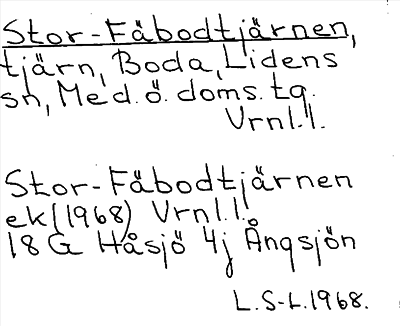 Stor-Fäbodtjärnen,
tjärn, Boda, Lidens
sn, Med.ö. doms.tg.
Vrnl.l.
Stor-Fäbodtjärnen
ek(1968) Vrnl.l.
18 G Håsjö 4j Ångsjön
L.S-L.1968.